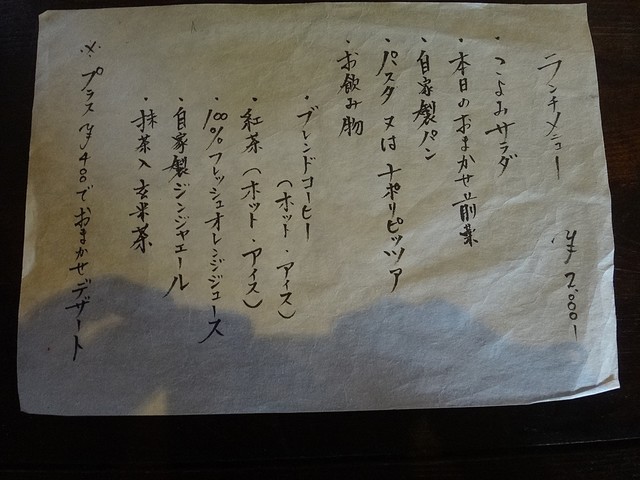 ランチメニュー ¥2.001
・こよみサラダ
・本日のおまかせ前菜
・自家製パン
・パスタ又はナポリピッツァ
・お飲み物
・ブレンドコーヒー
（ホット・アイス）
・紅茶（ホット・アイス）
・100%フレッシュオレンジジュース
・自家製ジンジャエール
・抹茶入玄米茶
※プラス¥480でおまかせデザート